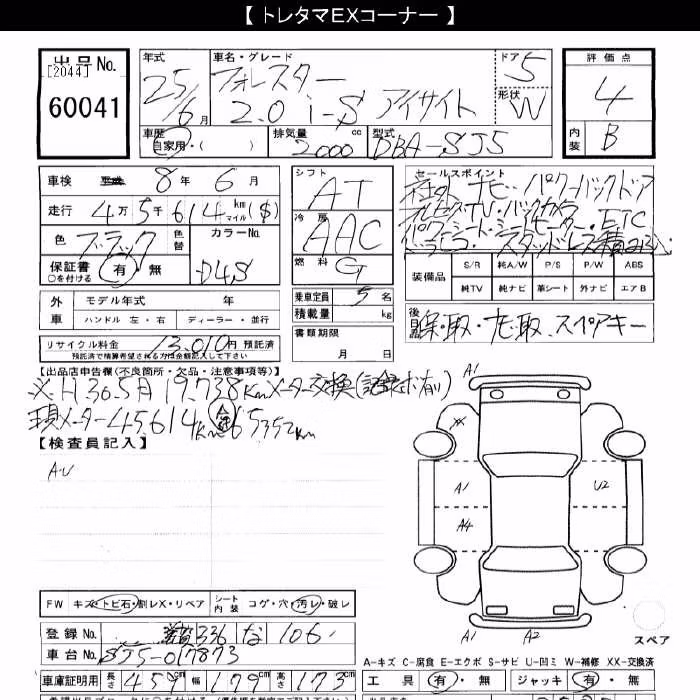 【 トレタマEXコーナー 】
出品No.
[2044]
60041
年式
25/6月
車名・グレード
フォレスター
2.0 i-S アイサイト
ドア 5
形状 W
評価点
4
内装 B
車歴
自家用・( )
排気量 2000 cc
型式 DBA-SJ5
車検 8年 6月
走行 4万5千614 km マイル ($)
色 ブラック
色替
カラーNo. D4S
保証書 有・無
○を付ける
シフト AT
冷房 AAC
燃料 G
乗車定員 5名
積載量 kg
書類期限
月 日
セールスポイント
ナビ・パワーバックドア
TV・バックカメラ
パワーシート・シートヒーター・ETC
スタッドレス積込み
装備品
S/R 純A/W P/S P/W ABS
純TV 純ナビ 革シート 外ナビ エアB
外車
モデル年式 年
ハンドル 左・右 ディーラー・並行
リサイクル料金 13,010円 預託済
預託済で精算希望される方は金額記入して下さい
後日品
保・取・ナビ取、スペアキー
【出品店申告欄(不良箇所・欠品・注意事項等)】
※H30.5月 19,738kmメーター交換(記録ボ有)
現メーター45,614km 合計65,352km
【検査員記入】
AU
A1
XX
A1
U2
A4
A1
A2
スペア
FW キズ・トビ石・割レX・リペア
シート内装 コゲ・穴・汚レ・破レ
登録No. 滋賀 336 な 106
車台No. SJ5-017873
A-キズ C-腐食 E-エクボ S-サビ U-凹ミ W-補修 XX-交換済
車庫証明用 長さ 459cm 幅 179cm 高さ 173cm
工具 有・無 ジャッキ 有・無